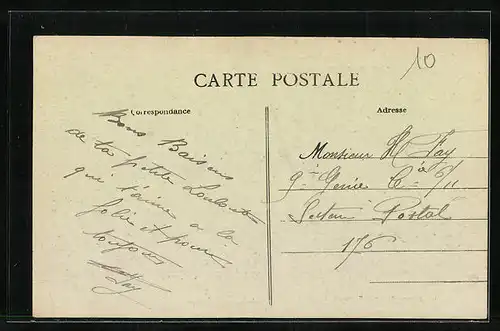 10
CARTE POSTALE
Correspondance
Adresse
Bons Baisers
de ta petite
qui t'aime a la
folie et pour
toujours
Fay
Monsieur H Fay
9e Génie Cie 6/11
Secteur Postal
176